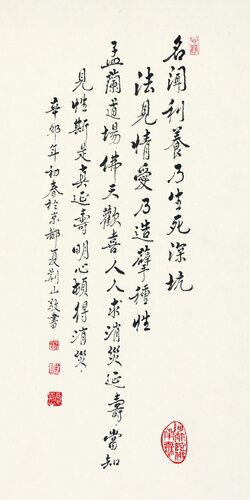 名闻利養乃生死深坑
法見情愛乃造孽種性
盂蘭道場佛天歡喜人人求消災延壽當知
見性斯是真延壽明心頓得消災
辛卯年初春於京都夏荆山敬書